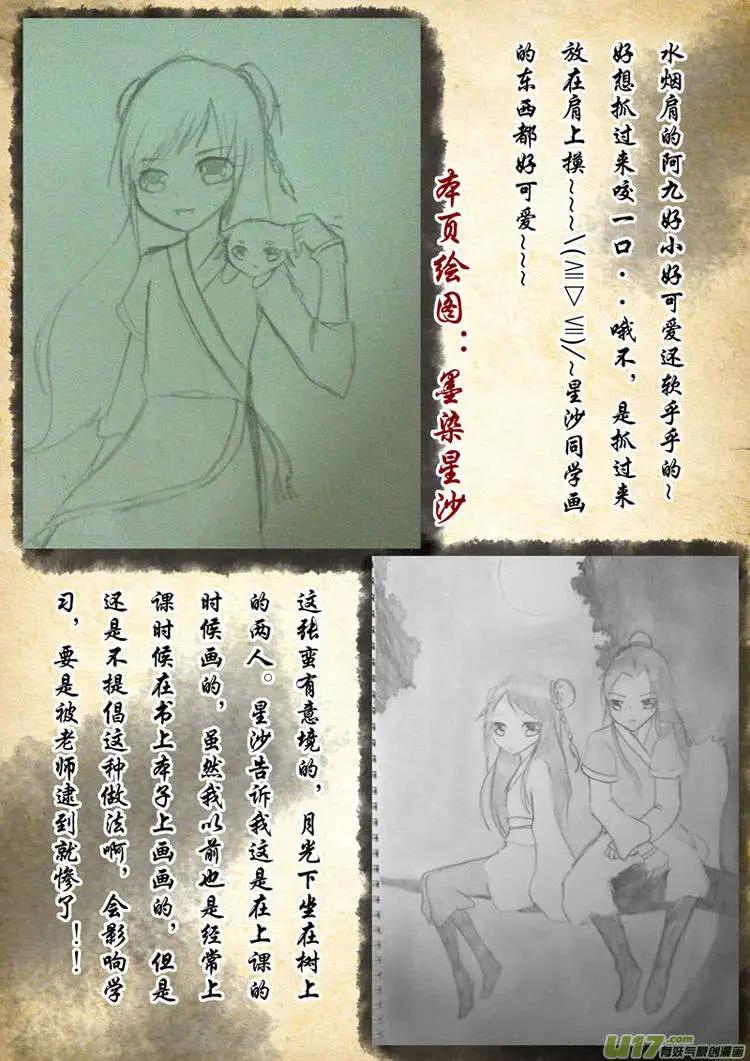 水烟肩的阿九好小好可爱还软乎乎的~
好想抓过来咬一口··哦不，是抓过来
放在肩上摸~~~\(≧▽≦)/~星沙同学画
的东西都好可爱~~~~
本页绘图：墨染星沙
这张蛮有意境的，月光下坐在树上
的两人。星沙告诉我这是在上课的
时候画的，虽然我以前也是经常上
课时候在书上本子上画画的，但是
还是不提倡这种做法啊，会影响学
习，要是被老师逮到就惨了！！
U17.com
有妖气原创漫画